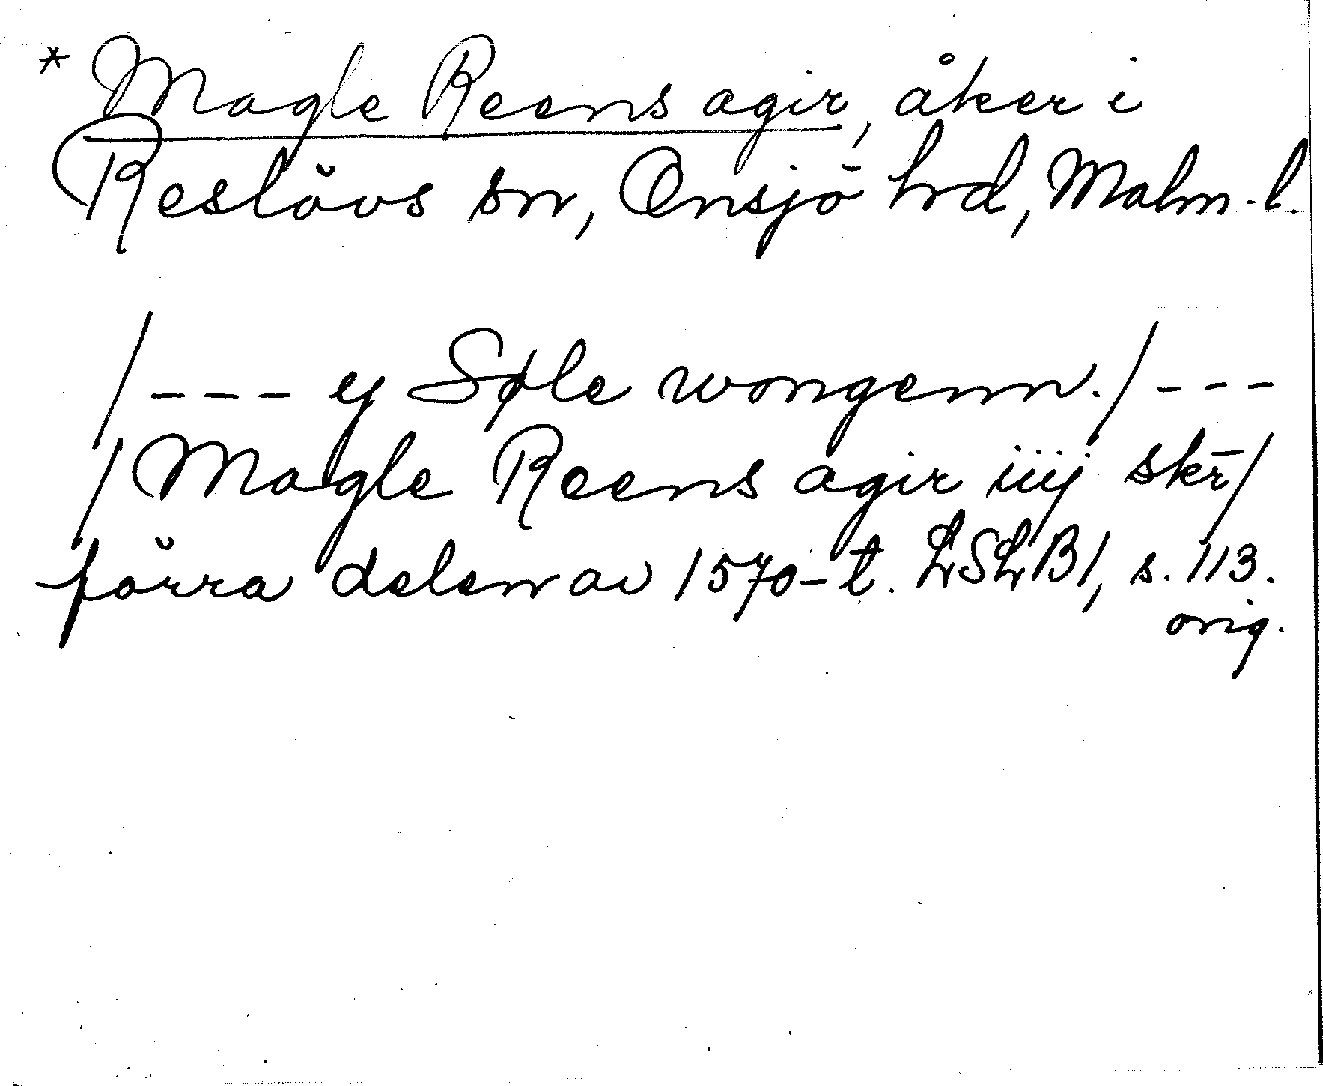 * Magle Reens agir, åker i
Reslövs sn, Onsjö hd, Malm. l.
/--- ej Søle wongenn./---
/Magle Reens agir iiij skr̄/
förra delen av 1570-t. LSLB1, s. 113.
orig.